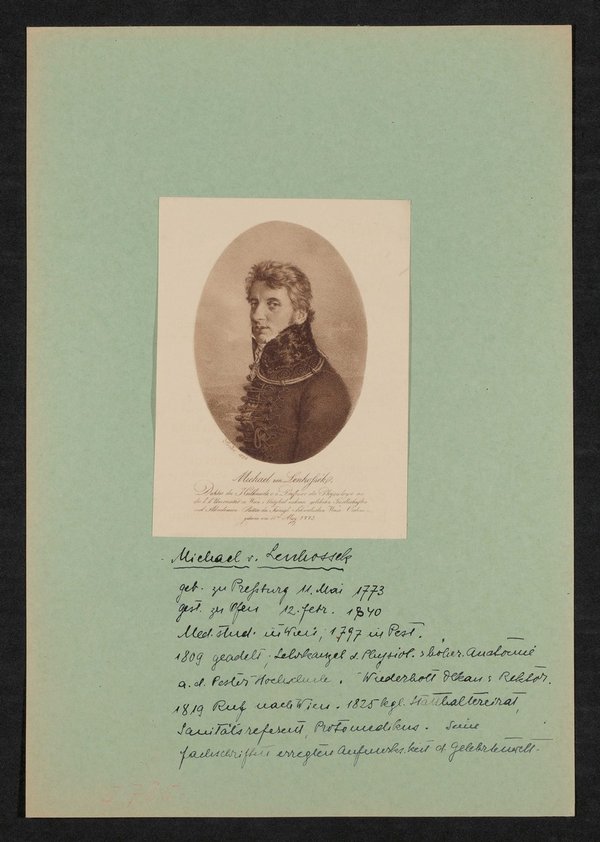 Michael von Lenhossék,
Doktor der Heilkunde u. Professor der Physiologie an
der k. k. Universität zu Wien, Mitglied mehrerer gelehrten Gesellschaften
und Akademien, Ritter des königl. Schwedischen Wasa Ordens.
geboren am 11ten May 1773.
Michael v. Lenhossek
geb. zu Preßburg 11. Mai 1773
gest. zu Ofen 12. febr. 1840
Med. stud. in Wien, 1797 in Pest.
1809 geadelt, Lehrkanzel d. Physiol. u. höher. Anatomie
a. d. Pester Hochschule. Wiederholt Dekan u. Rektor.
1819 Ruf nach Wien. 1825 kgl. Statthaltereirat,
Sanitätsreferent, Protomedikus. Seine
Fachschriften erregten Aufmerks.keit d. Gelehrtenwelt.